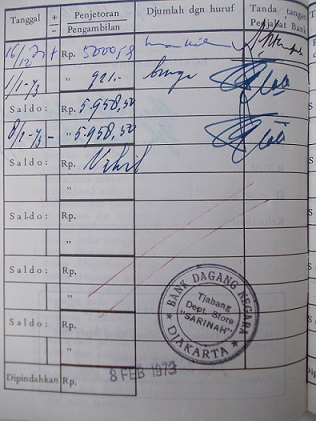 Tanggal + - Penjetoran Pengambilan Djumlah dgn huruf Tanda tangan Pejabat Bank
16/12 + Rp.
1/1-73 " 921.- bunga
Saldo: Rp. 5.958,50
8/1-73 - " 5.958,50
Saldo: Rp. Nihil
"
Saldo: Rp.
"
Saldo: Rp.
"
Saldo: Rp.
"
Dipindahkan Rp.
BANK DAGANG NEGARA
Tjabang
Dept. Store
"SARINAH"
DJAKARTA
8 FEB 1973